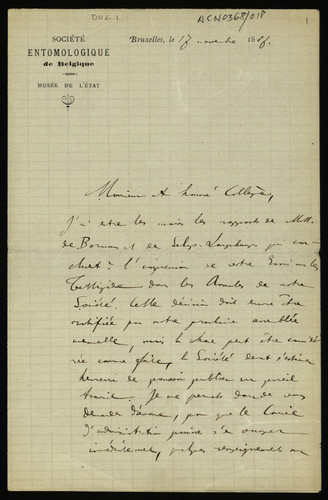 DOC 1
ACN0368/018
1
SOCIÉTÉ
ENTOMOLOGIQUE
de Belgique
MUSÉE DE L'ÉTAT
Bruxelles, le 17 novembre 188
Monsieur et honoré Collègue,
J'ai entre les mains les rapports de MM.
de Bormans et de Selys-Longchamps qui con-
cluent à l'impression de votre sur les
dans les Annales de notre
Société. Cette décision doit encore être
ratifiée par notre prochaine assemblée
mensuelle, mais la chose peut être considé-
rée comme faite, la Société devant s'estimer
heureuse de pouvoir publier un pareil
travail. Je me permets donc de vous
demander d'avance, pour que le Conseil
d'administration puisse s'en occuper
immédiatement, quelques renseignements sur